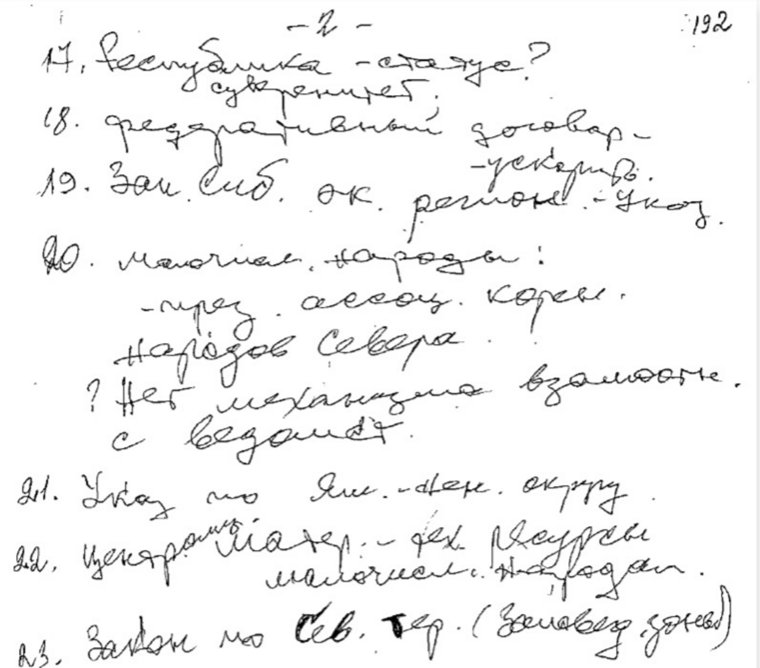 - 2 -
192
17. Республика - статус?
суверенитет.
18. федеративный договор -
- ускорить.
19. Зап. Сиб. эк. регион. - Указ.
20. малочисл. народы:
- през. ассоц. корен.
народов Севера.
? Нет механизма взаимоотн.
с ведомст.
21. Указ по Ям.-Нен. округу
22. Центр Матер.-тех. ресурсы
малочисл. народам.
23. Закон по Сев. тер. (Заповед. зоны)